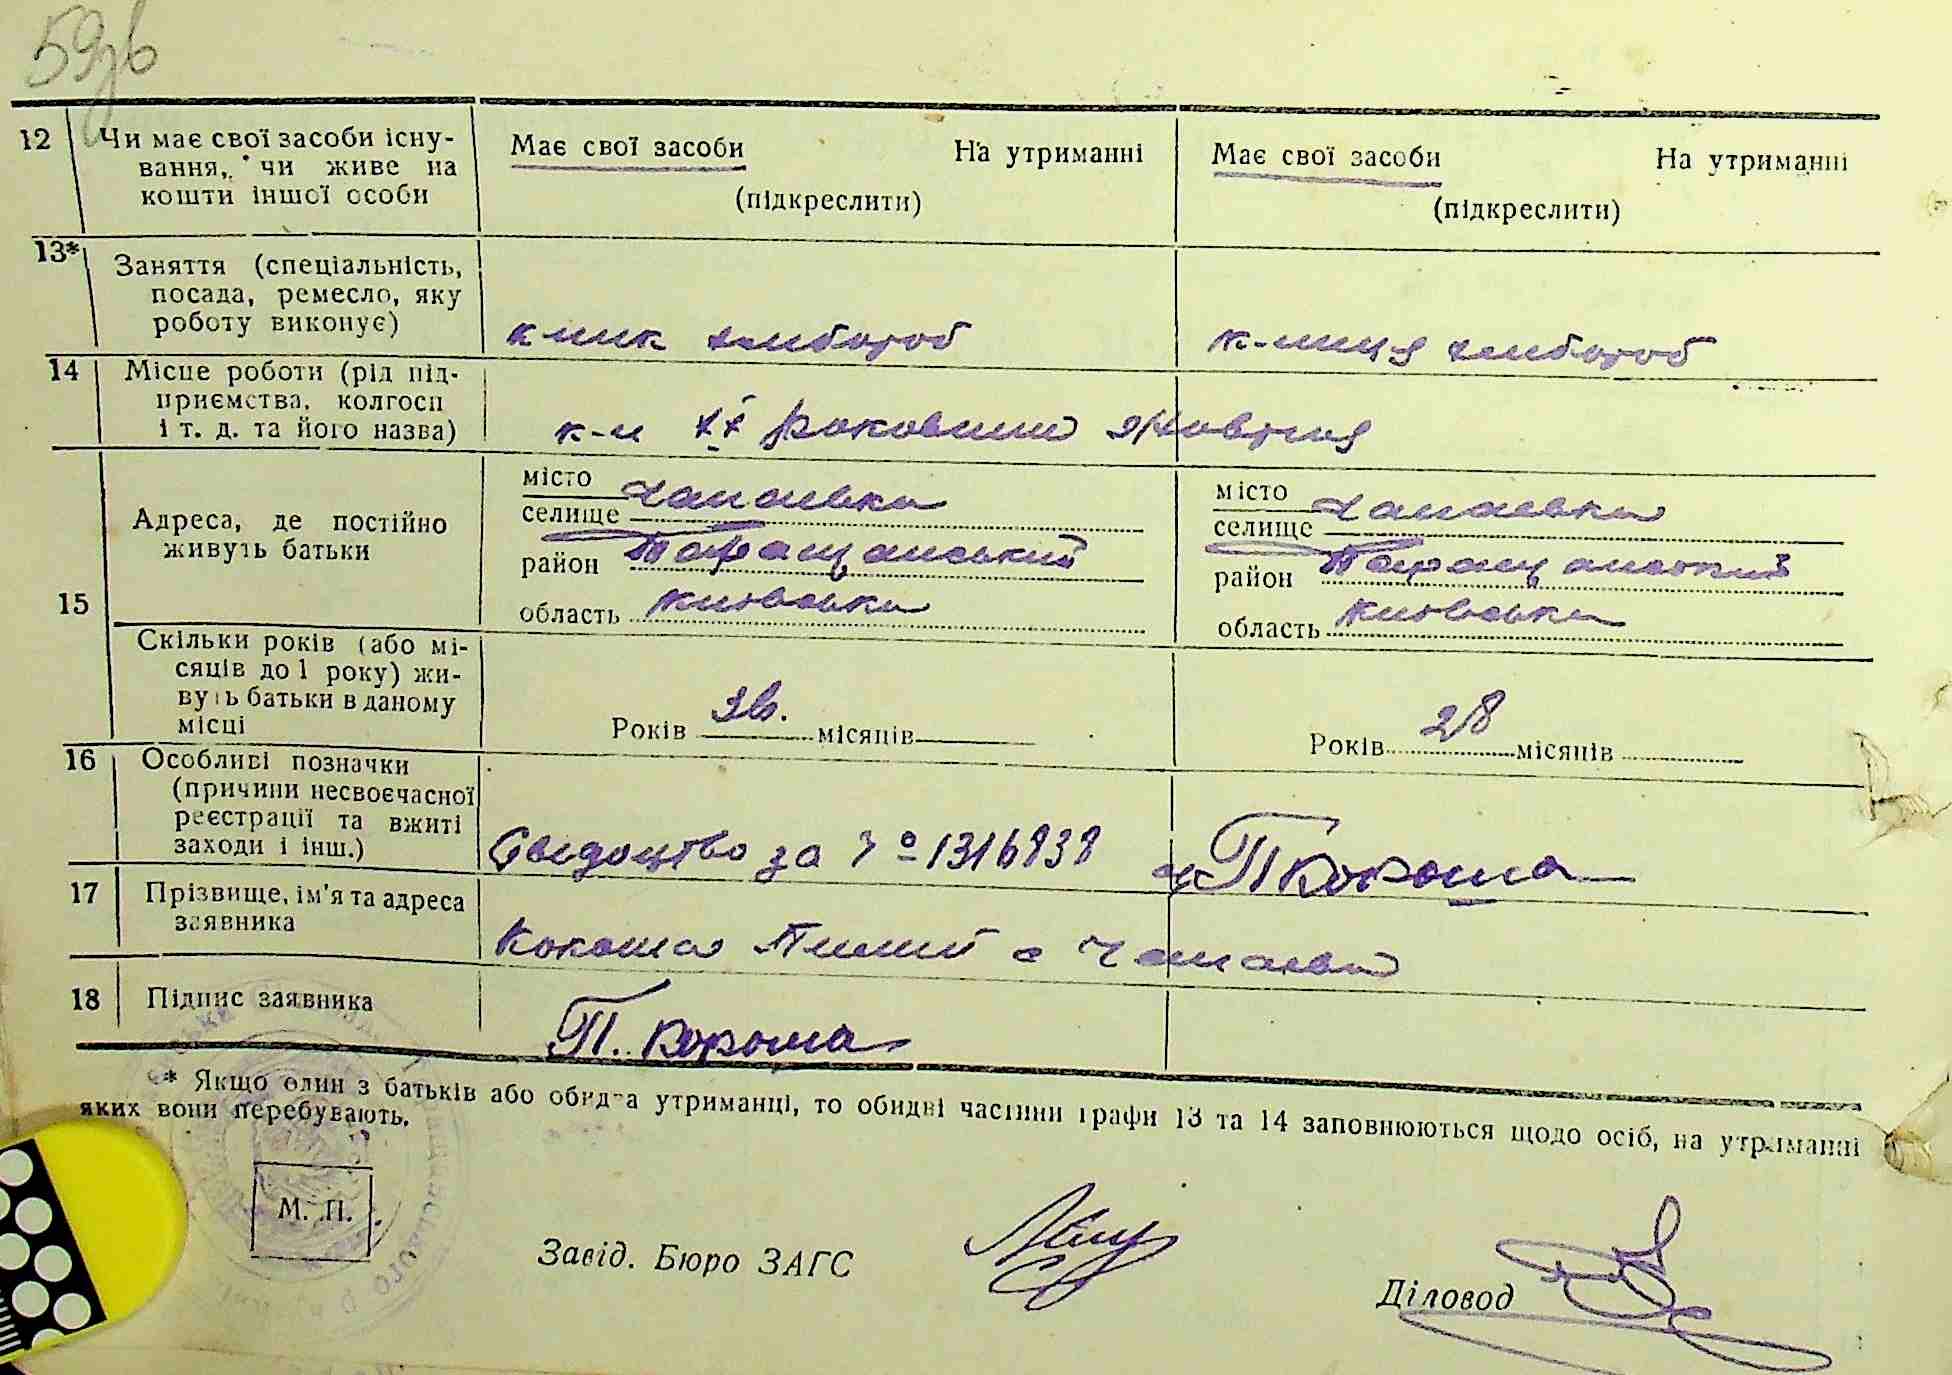 59зв
12 Чи має свої засоби існу-
вання, чи живе на
кошти іншої особи
Має свої засоби На утриманні
(підкреслити)
Має свої засоби На утриманні
(підкреслити)
13* Заняття (спеціальність,
посада, ремесло, яку
роботу виконує)
к-ник хлібороб
к-ниця хлібороб
14 Місце роботи (рід під-
приємства, колгосп
і т. д. та його назва)
к-п ХХ роковини Жовтня
15 Адреса, де постійно
живуть батьки
місто
селище Чапаевка
район Таращанський
область Київська
місто
селище Чапаевка
район Таращанський
область Київська
Скільки років (або мі-
сяців до 1 року) жи-
вуть батьки в даному
місці
Років місяців
Років 28 місяців
16 Особливі позначки
(причини несвоєчасної
реєстрації та вжиті
заходи і інш.)
Свидоцтво за № 1316939
П Кокоша
17 Прізвище, ім'я та адреса
заявника
Кокоша Пилип с Чапаевка
18 Підпис заявника
П. Кокоша
* Якщо один з батьків або обидва утриманці, то обидві частини графи 13 та 14 заповнюються щодо осіб, на утриманні
яких вони перебувають.
М. П.
Завід. Бюро ЗАГС
Діловод